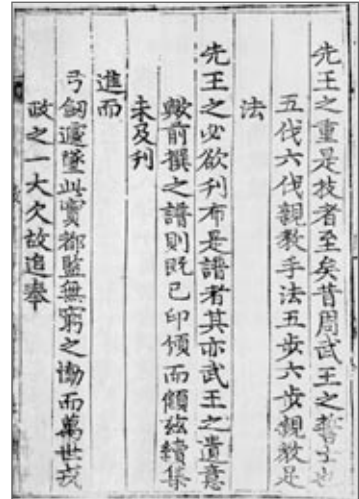 先王之重是技者至矣昔周武王之誓士也
五伐六伐親教手法五步六步親教足
法
先王之必欲刊布是譜者其亦武王之遺意
歟前撰之譜則既已印頒而顧玆續集
未及刊
進而
弓劒遽墜此實都監無窮之慟而萬世戎
政之一大欠故追奉